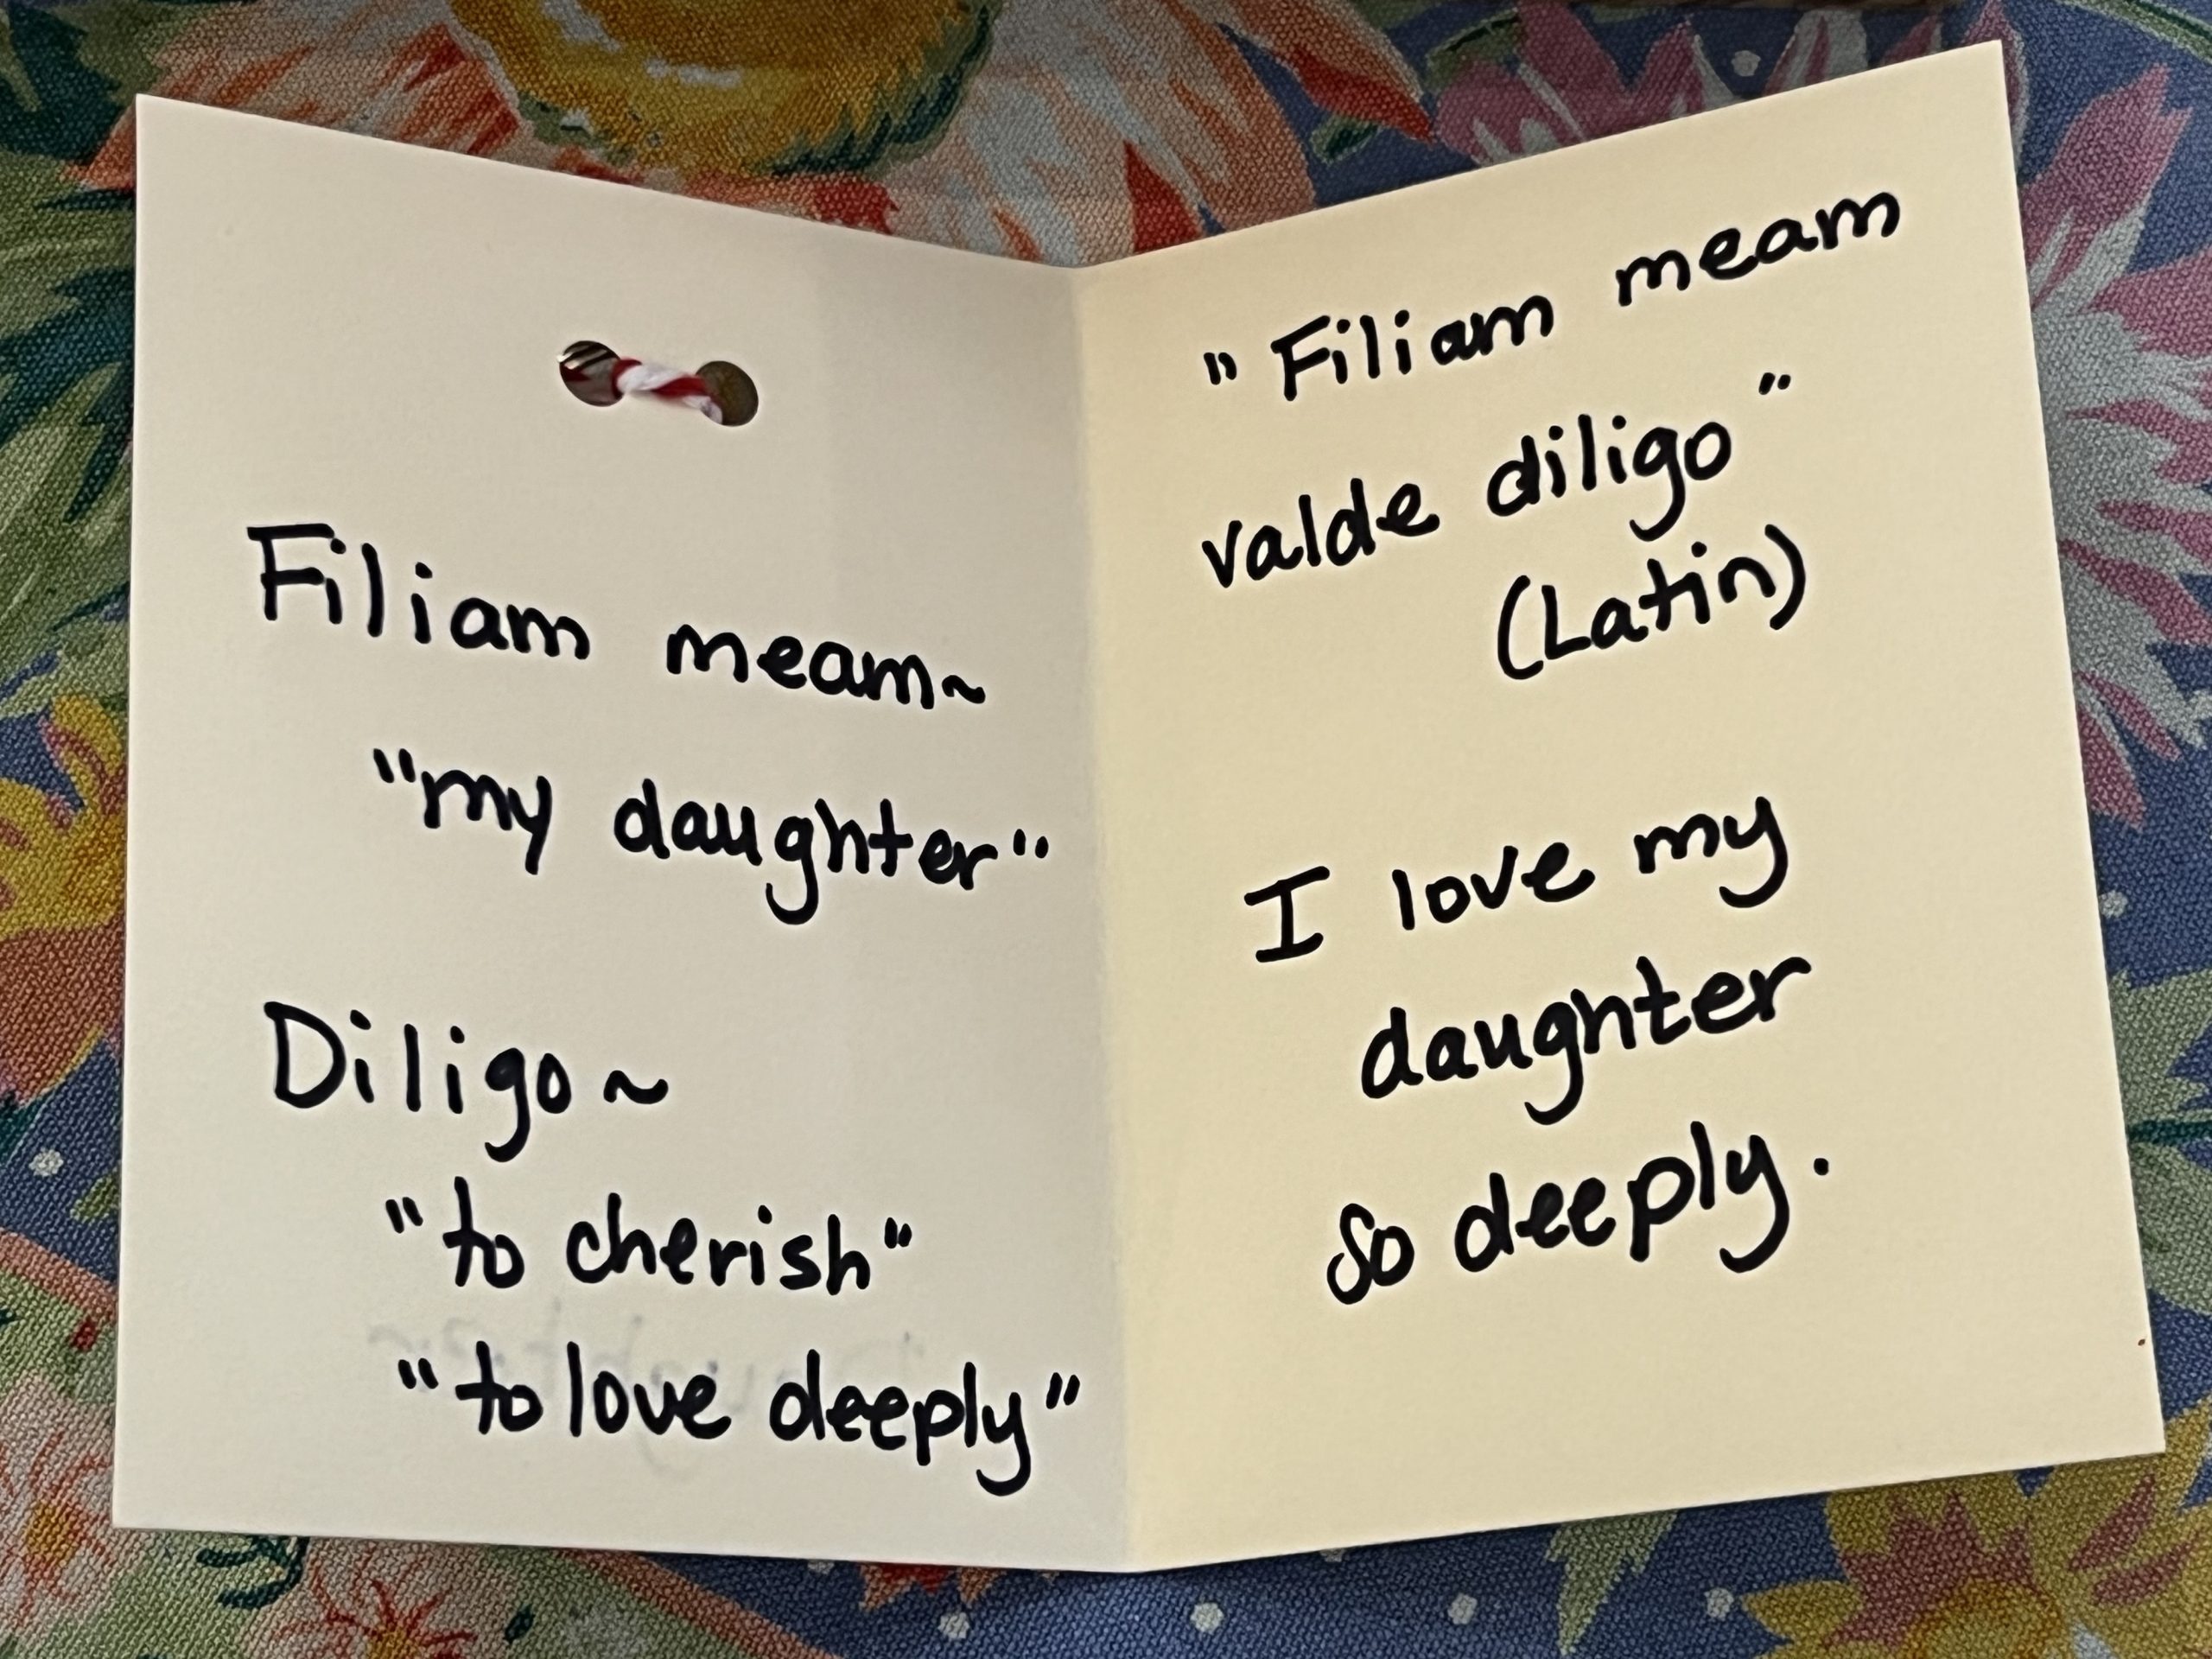 Filiam meam~
"my daughter"
Diligo~
"to cherish"
"to love deeply"
"Filiam meam
valde diligo"
(Latin)
I love my
daughter
so deeply.